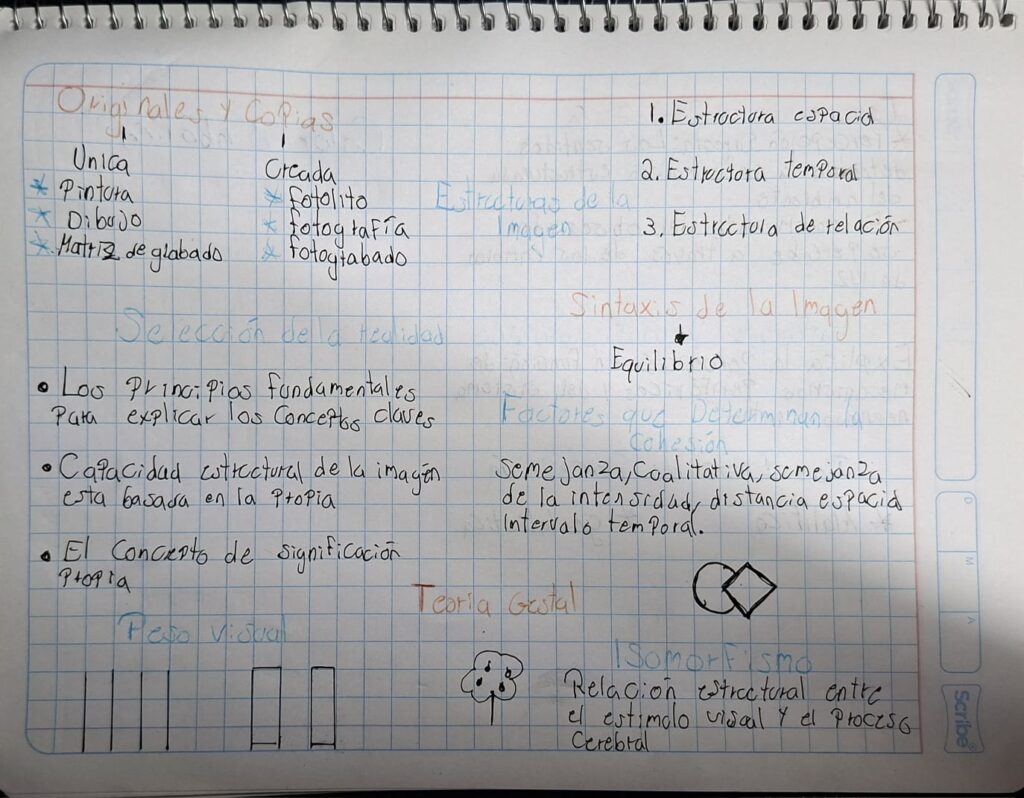 Originales y Copias
Unica
* Pintura
* Dibujo
* Matriz de glabado
Creada
* fotolito
* fotografía
* fotograbado
Estructuras de la
Imagen
1. Estructura espacid
2. Estructura temporal
3. Estructura de relación
Selección de la realidad
• Los Principios fundamentales
Para explicar los Conceptos claves
• Capacidad estructural de la imagen
esta basada en la Propia
• El Concepto de significación
Propia
Sintaxis de la Imagen
Equilibrio
Factores que Determinan la
Cohesión
Semejanza, Coalitativa, semejanza
de la intensidad, distancia espacid
Intervalo temporal.
Teoria Gestal
Peso visual
Isomorfismo
Relación estructural entre
el estimolo visual y el Proceso
Cerebral
D
M
A
Scribe